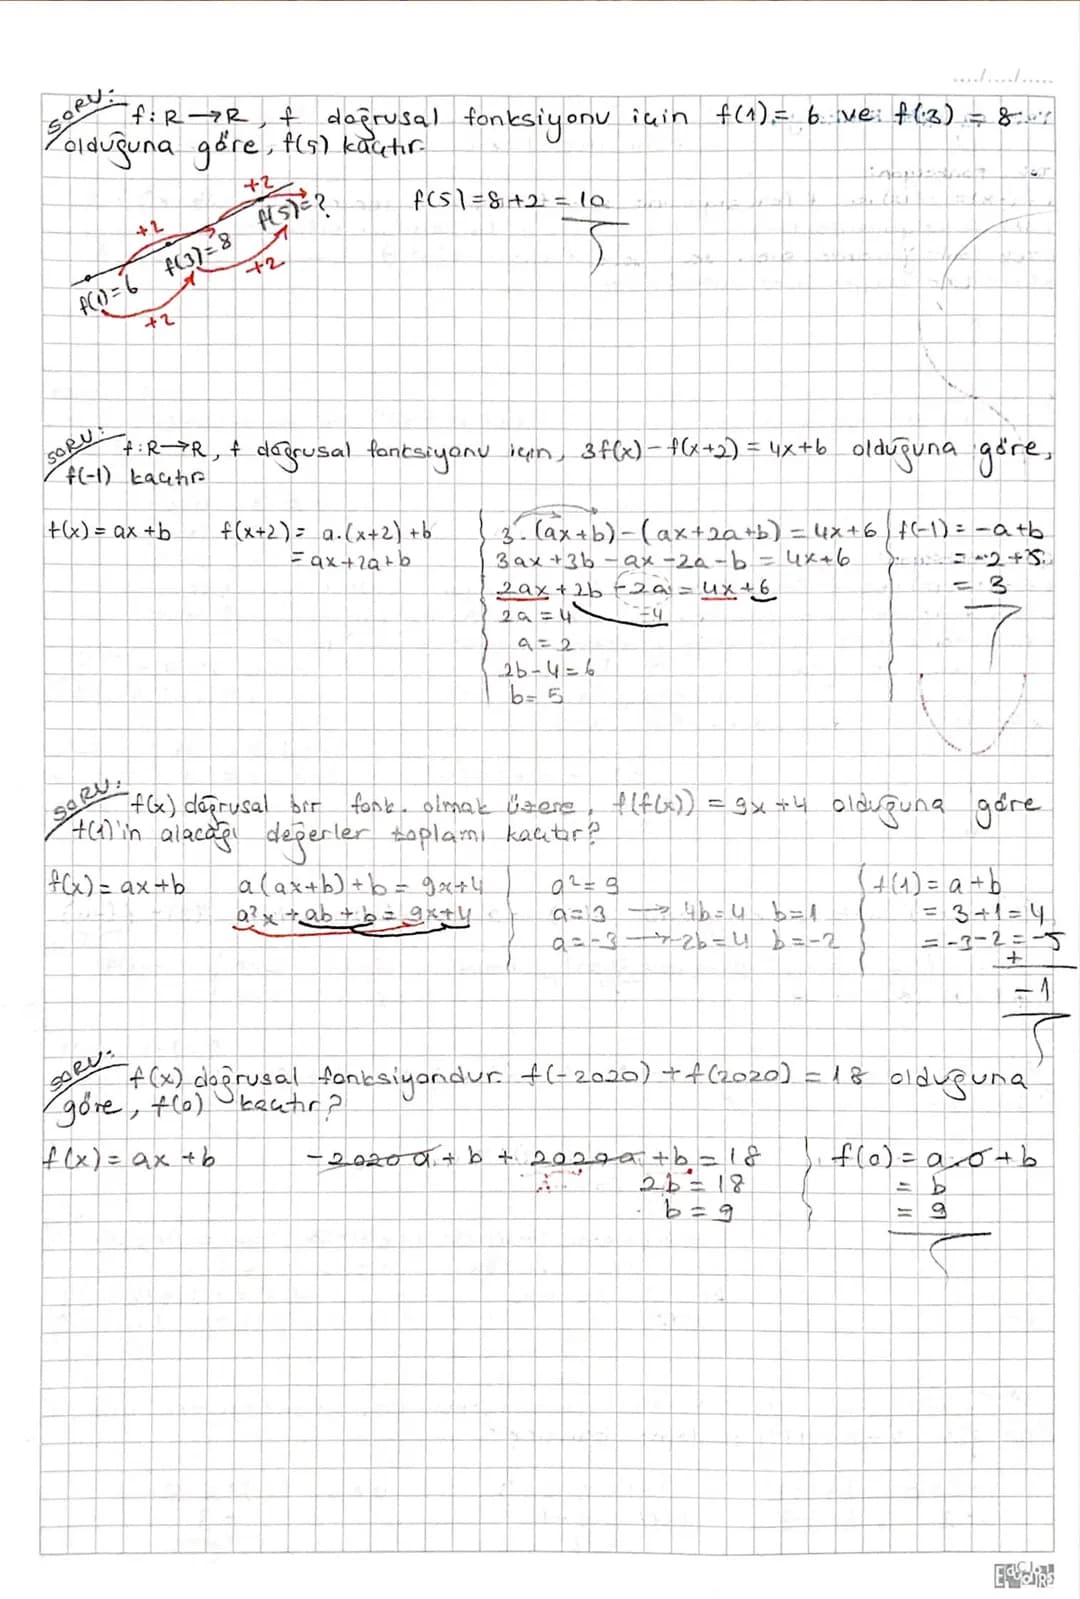 SORU: f:R→R, f doğrusal fonksiyonu için f(1) = 6 ve f(3) = 8
olduğuna göre, f(5) kaçtır.
+2
+2
f(5)=?
f(3)=8
f(1)=6
+2
+2
f(5)=8+2=10
SORU: f:R→R, f doğrusal fonksiyonu için, 3f(x)-f(x+2)=4x+6 olduğuna göre,
f(-1) kaçtır
f(x)=ax+b
f(x+2)=a.(x+2)+b
=ax+2a+b
3.(ax+b)-(ax+2a+b)=4x+6
3ax+3b-ax-2a-b=4x+6
2ax+2b-2a=4x+6
2a=4 =4
a=2
2b-4=6
b=5
f(-1)=-a+b
=-2+5
=3
SORU: f(x) doğrusal bir fonk. olmak üzere, f(f(x))=9x+4 olduğuna göre
f(1)'in alacağı değerler toplamı kaçtır?
f(x)=ax+b
a(ax+b)+b=9x+4
a²x+ab+b=9x+4
a²=9
a=3 → 4b=4 b=1
a=-3 → -2b=4 b=-2
f(1)=a+b
=3+1=4
=-3-2=-5
+
-1
SORU: f(x) doğrusal fonksiyondur. f(-2020)+f(2020)=18 olduğuna
göre, f(0) kaçtır?
f(x)=ax+b
-2020a+b+2020a+b=18
2b=18
b=9
f(0)=a.0+b
=b
=9